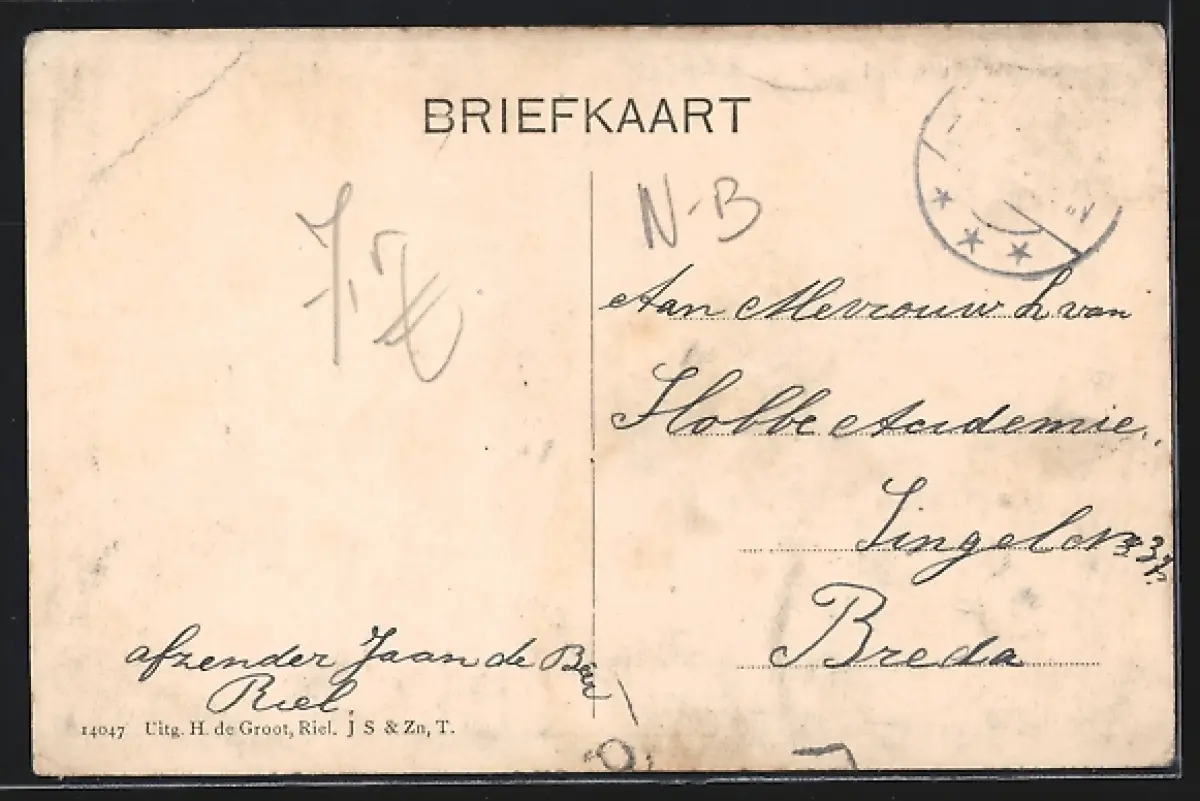 BRIEFKAART
N-B
Aan Mevrouw L van
Hobbe Academie
Singel No 37
Breda
afzender Jaan de Bar
Riel.
14047 Uitg. H. de Groot, Riel. J S & Zn, T.